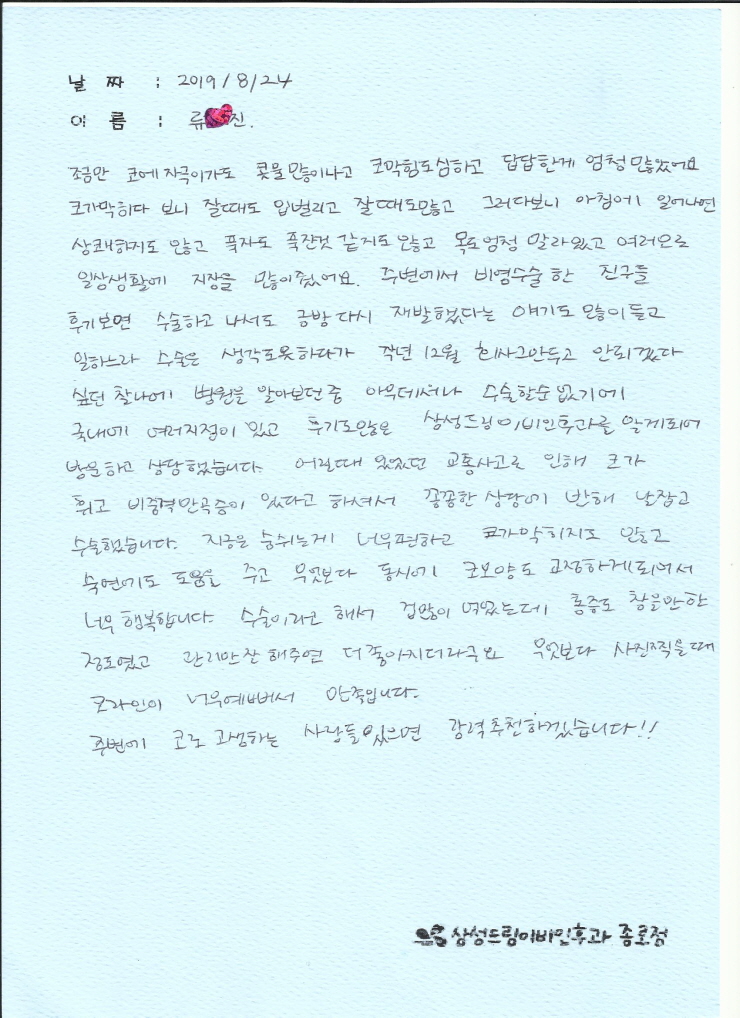 날 짜 : 2019/8/24
이 름 : 류 진.
조금만 코에 자극이가도 콧물 많이나고 코막힘도심하고 답답한게 엄청 많았어요
코가막히다 보니 잘때도 입벌리고 잘때도많고 그러다보니 아침에 일어나면
상쾌하지도 않고 푹자도 푹잔것 같지도 않고 목도엄청 말라있고 여러모로
일상생활에 지장을 많이줬어요. 주변에서 비염수술 한 친구들
후기보면 수술하고 나서도 금방 다시 재발했다는 얘기도 많이들고
일하느라 수술은 생각도못하다가 작년 12월 회사그만두고 안되겠다
싶던 찰나에 병원을 알아보던 중 아무데서나 수술할순 없기에
국내에 여러지점이 있고 후기도많은 삼성드림이비인후과를 알게되어
방문하고 상담했습니다. 어릴때 있었던 교통사고로 인해 코가
휘고 비중격만곡증이 있다고 하셔서 꼼꼼한 상담에 반해 날잡고
수술했습니다. 지금은 숨쉬는게 너무편하고 코가막히지도 않고
숙면에도 도움을 주고 무엇보다 동시에 코모양도 교정하게되어서
너무 행복합니다. 수술이라고 해서 겁많이 먹었는데 통증도 참을만한
정도였고 관리만잘 해주면 더좋아지더라구요 무엇보다 사진찍을때
코라인이 너무예뻐서 만족입니다.
주변에 코로 고생하는 사람들있으면 강력추천하겠습니다!!
삼성드림이비인후과 종로점